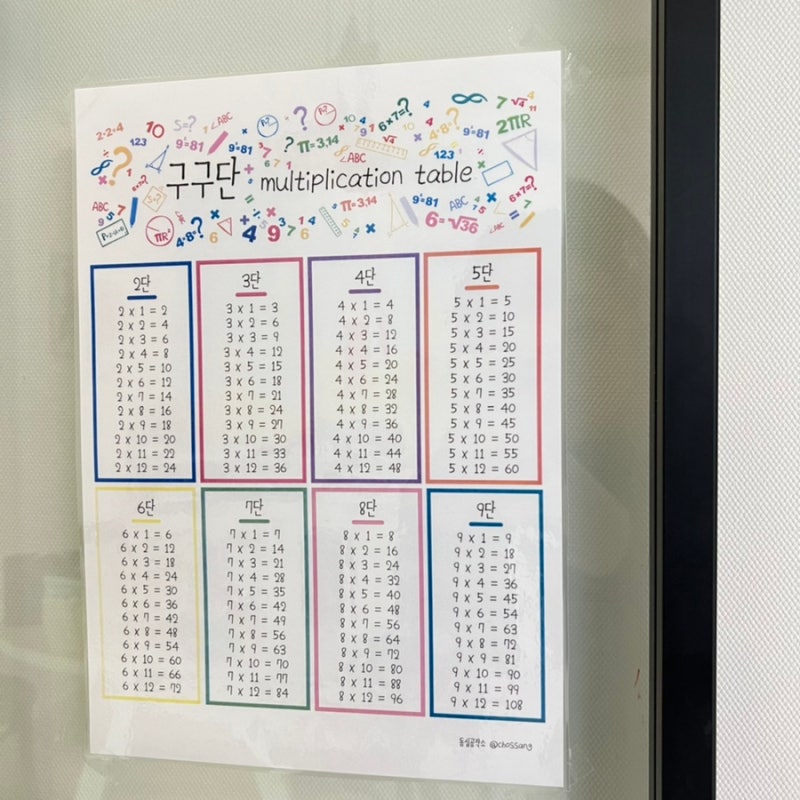 2·2=4
10
S=?
∠ABC
?
7
√4
4
11
123
9²=81
π=3.14
6×7=?
4·8=?
9²=81
2πR
∠ABC
123
구구단 multiplication table
ABC
9 5 7
πR²
4·8=?
6
4 9 7 6
π=3.14
9²=81
ABC
6=√36
6×7=?
7
2단
2 x 1 = 2
2 x 2 = 4
2 x 3 = 6
2 x 4 = 8
2 x 5 = 10
2 x 6 = 12
2 x 7 = 14
2 x 8 = 16
2 x 9 = 18
2 x 10 = 20
2 x 11 = 22
2 x 12 = 24
3단
3 x 1 = 3
3 x 2 = 6
3 x 3 = 9
3 x 4 = 12
3 x 5 = 15
3 x 6 = 18
3 x 7 = 21
3 x 8 = 24
3 x 9 = 27
3 x 10 = 30
3 x 11 = 33
3 x 12 = 36
4단
4 x 1 = 4
4 x 2 = 8
4 x 3 = 12
4 x 4 = 16
4 x 5 = 20
4 x 6 = 24
4 x 7 = 28
4 x 8 = 32
4 x 9 = 36
4 x 10 = 40
4 x 11 = 44
4 x 12 = 48
5단
5 x 1 = 5
5 x 2 = 10
5 x 3 = 15
5 x 4 = 20
5 x 5 = 25
5 x 6 = 30
5 x 7 = 35
5 x 8 = 40
5 x 9 = 45
5 x 10 = 50
5 x 11 = 55
5 x 12 = 60
6단
6 x 1 = 6
6 x 2 = 12
6 x 3 = 18
6 x 4 = 24
6 x 5 = 30
6 x 6 = 36
6 x 7 = 42
6 x 8 = 48
6 x 9 = 54
6 x 10 = 60
6 x 11 = 66
6 x 12 = 72
7단
7 x 1 = 7
7 x 2 = 14
7 x 3 = 21
7 x 4 = 28
7 x 5 = 35
7 x 6 = 42
7 x 7 = 49
7 x 8 = 56
7 x 9 = 63
7 x 10 = 70
7 x 11 = 77
7 x 12 = 84
8단
8 x 1 = 8
8 x 2 = 16
8 x 3 = 24
8 x 4 = 32
8 x 5 = 40
8 x 6 = 48
8 x 7 = 56
8 x 8 = 64
8 x 9 = 72
8 x 10 = 80
8 x 11 = 88
8 x 12 = 96
9단
9 x 1 = 9
9 x 2 = 18
9 x 3 = 27
9 x 4 = 36
9 x 5 = 45
9 x 6 = 54
9 x 7 = 63
9 x 8 = 72
9 x 9 = 81
9 x 10 = 90
9 x 11 = 99
9 x 12 = 108
동심공작소 @chossang